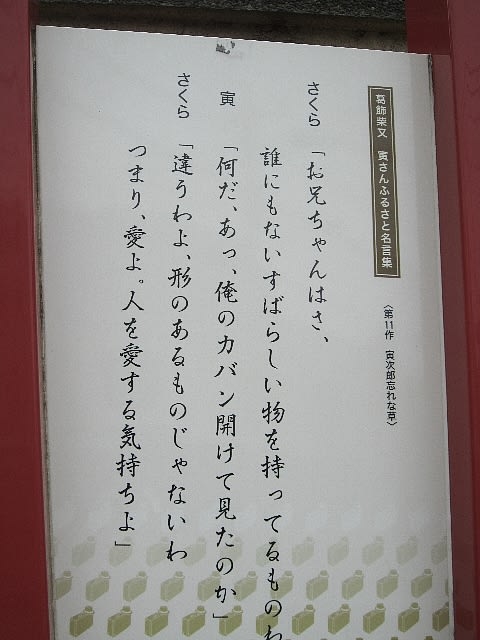 葛飾柴又 寅さんふるさと名言集
〈第11作 寅次郎忘れな草〉
さくら「お兄ちゃんはさ、
誰にもないすばらしい物を持ってるものね
寅「何だ、あっ、俺のカバン開けて見たのか」
さくら「違うわよ、形のあるものじゃないわ
つまり、愛よ。人を愛する気持ちよ」